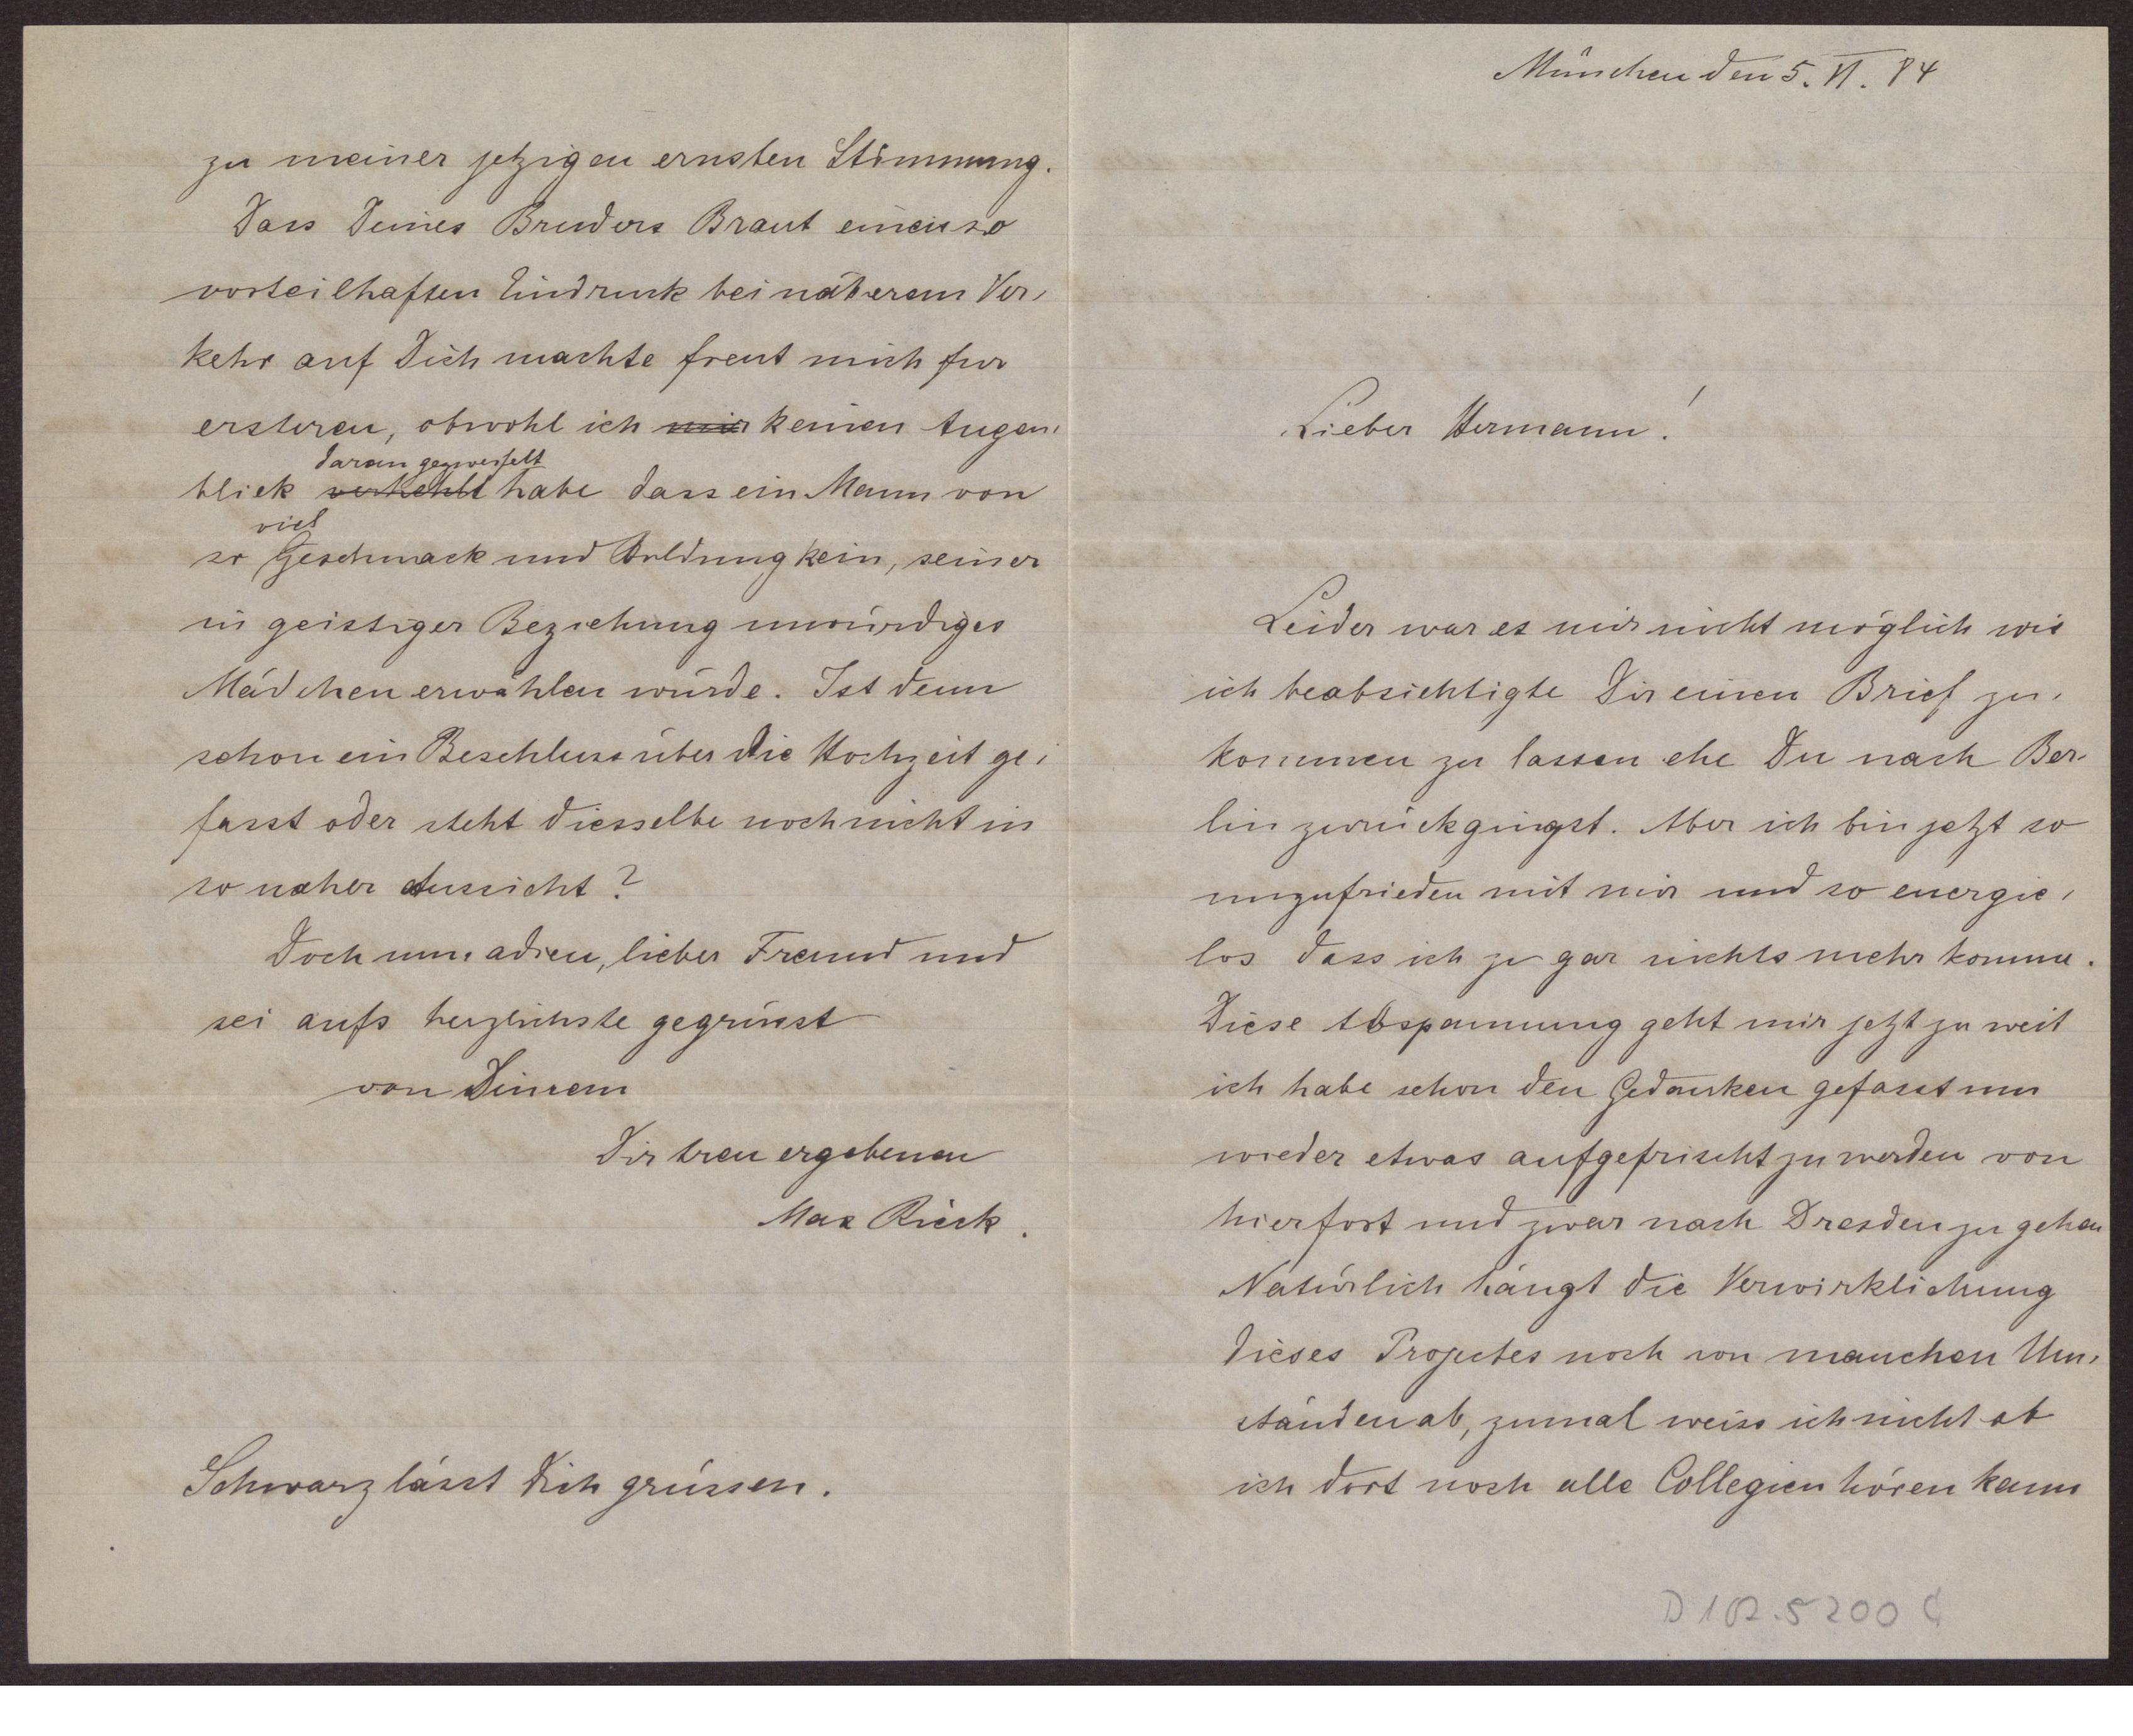 München den 5. VI. 84
Lieber Hermann!
Leider war es mir nicht möglich wie
ich beabsichtigte Dir einen Brief zu-
kommen zu lassen ehe Du nach Ber-
lin zurückgingst. Aber ich bin jetzt so
unzufrieden mit mir und so energie-
los dass ich zu gar nichts mehr komme.
Diese Abspannung geht mir jetzt zu weit
ich habe schon den Gedanken gefasst um
wieder etwas aufgefrischt zu werden von
hier fort und zwar nach Dresden zu gehen
Natürlich hängt die Verwirklichung
dieses Projectes noch von manchen Um-
ständen ab, zumal weiss ich nicht ob
ich dort noch alle Collegien hören kann
D 182.5200 C
zu meiner jetzigen ernsten Stimmung.
Dass Deines Bruders Braut einen so
vorteilhaften Eindruck bei näherem Ver-
kehr auf Dich machte freut mich fur
ersteren, obwohl ich mir keinen Augen-
daran gezweifelt
blick verhehlt habe dass ein Mann von
viel
so Geschmack und Bildung kein, seiner
in geistiger Beziehung unwürdiges
Mädchen erwählen würde. Ist denn
schon ein Beschluss über die Hochzeit ge-
fasst oder steht diesselbe noch nicht in
so naher Aussicht?
Doch nun adieu, lieber Freund und
sei aufs herzlichste gegrüsst
von Deinem
Dir treu ergebenen
Max Rieck.
Schwarz lässt Dich grüssen.